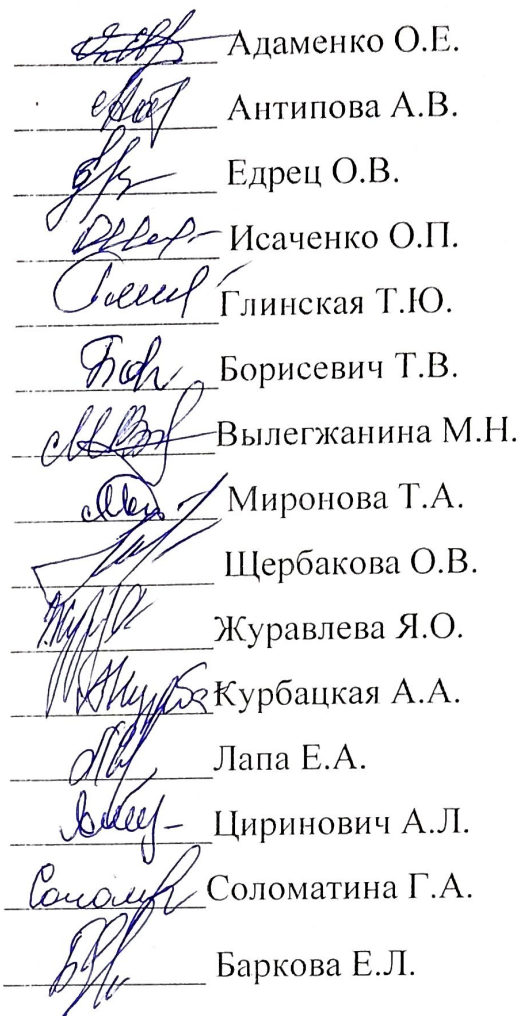 Адаменко О.Е.
Антипова А.В.
Едрец О.В.
Исаченко О.П.
Глинская Т.Ю.
Борисевич Т.В.
Вылегжанина М.Н.
Миронова Т.А.
Щербакова О.В.
Журавлева Я.О.
Курбацкая А.А.
Лапа Е.А.
Циринович А.Л.
Соломатина Г.А.
Баркова Е.Л.